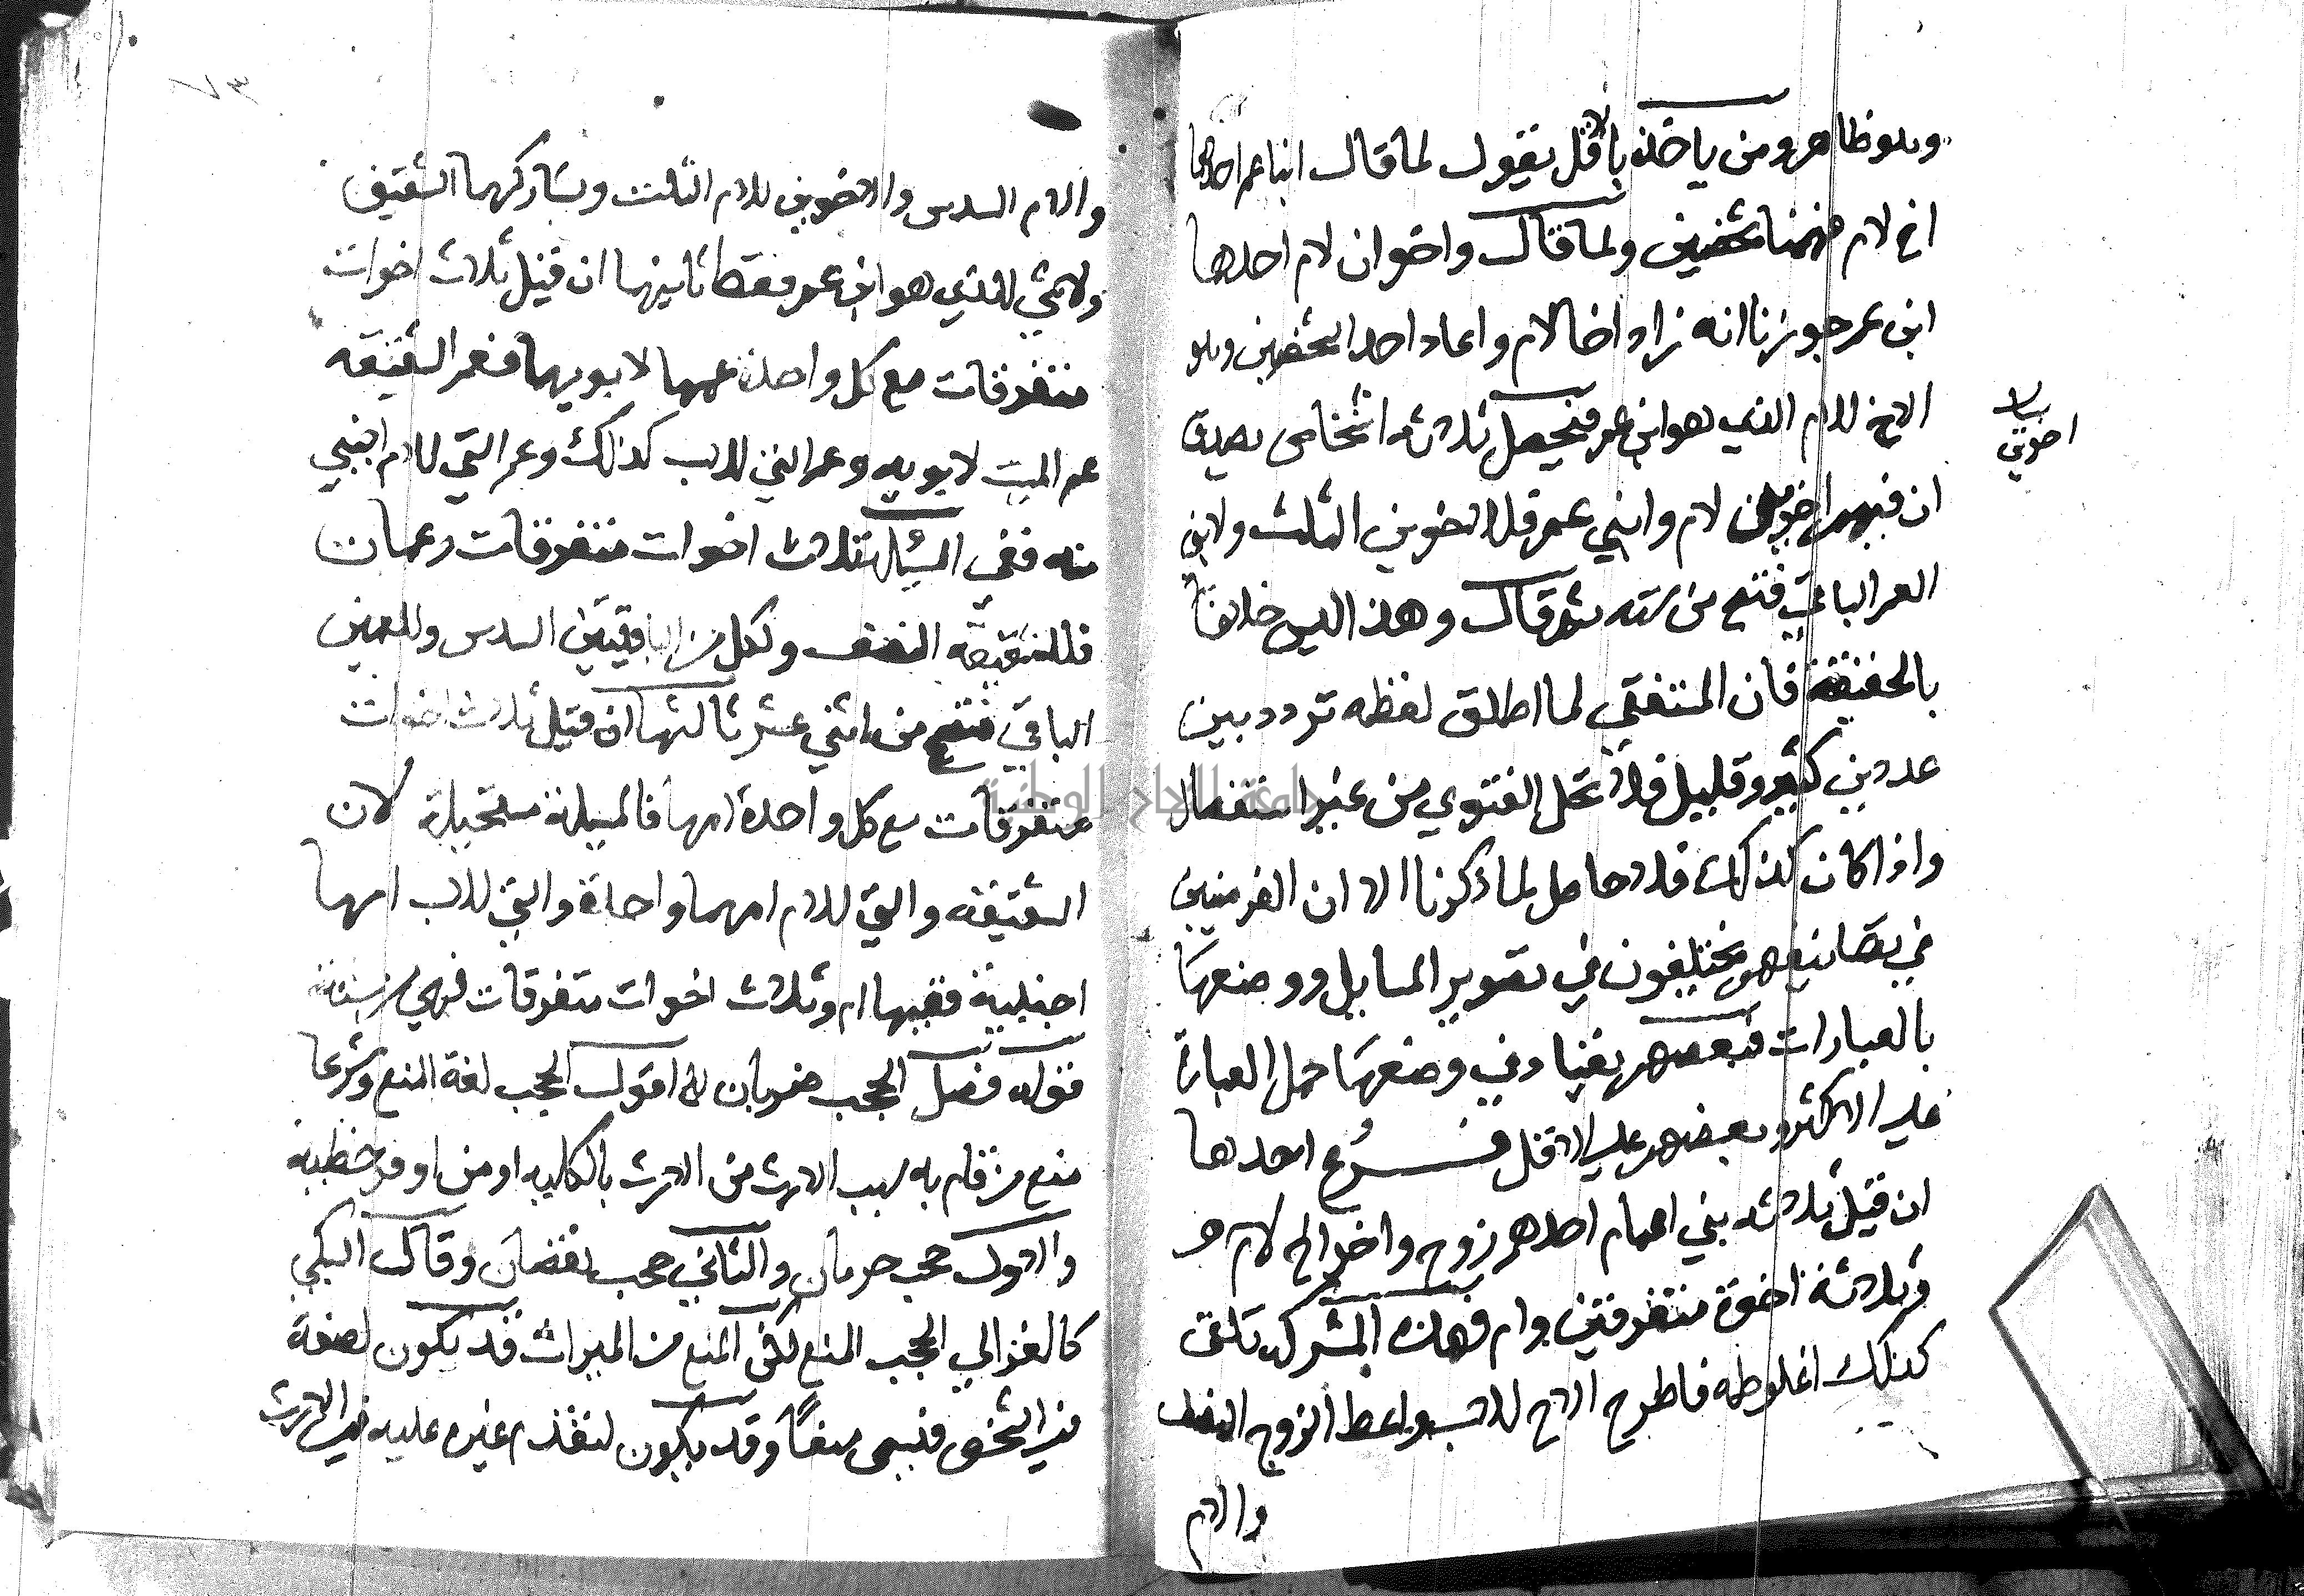 وهو ظاهر ومن ياخذ بالاقل يقول لما قال ابنا عم احدهما
اخ لام فهمنا شخصين ولما قال واخوان لام احدهما
ابن عم جوزنا انه زاد اخا لام واعاد احد الشخصين وهو
الاخ للام الذي هو ابن عم فيحصل ثلاثة اشخاص يصدق
ان فيهم اخوين لام وابني عم فللاخوين الثلث ولابن
العم الباقي فتصح من سته ثم قال وهذا ليس خلافا
بالحقيقة فان المستفتي لما اطلق لفظه تردد بين
عددين كثير وقليل فلا تحل الفتوي من غير استفصال
واذا كان كذلك فلا حاصل لما ذكرنا الا ان الفرضيين
في تصانيفهم مختلفون في تصوير المسايل ووضعها
بالعبارات فبعضهم يعتاد في وضعها حمل العبارة
علي الاكثر وبعضهم علي الاقل فرع احدها
ان قيل ثلاثة بني اعمام احدهم زوج واخر اخ لام
وثلاثة اخوة متفرقين وام فهذه المشركة تلقى
كذلك اغلوطه فاطرح الاخ للاب واعط الزوج النصف
والام
بيان
اخوين
والام السدس والاخوين للام الثلث ويشاركهما الشقيق
ولا شي للذي هو ابن عم فقط ثانيها ان قيل ثلاث اخوات
متفرقات مع كل واحدة عمها لابويها فعم الشقيقه
عم الميت لابويه وعم التي للاب كذلك وعم التي للام اجنبي
منه ففي المسالة ثلاث اخوات متفرقات وعمان
فللشقيقه النصف ولكل من الباقيتين السدس وللعمين
الباقي فتصح من اثني عشر ثالثها ان قيل ثلاث اخوات
متفرقات مع كل واحدة امها فالمسيلة مستحيلة لان
الشقيقه والتي للام امهما واحدة والتي للاب امها
اجنبية ففيها ام وثلاث اخوات متفرقات فهي من ستة
قوله فصل الحجب ضربان الخ اقول الحجب لغة المنع وشرعا
منع من قام به سبب الارث من الارث بالكليه او من اوفر حظيه
والاول حجب حرمان والثاني حجب نقصان وقال السبكي
كالغزالي الحجب المنع لكن المنع من الميراث قد يكون لصفة
في الشخص فيسمى منعا وقد يكون لتقدم غيره عليه في الارث